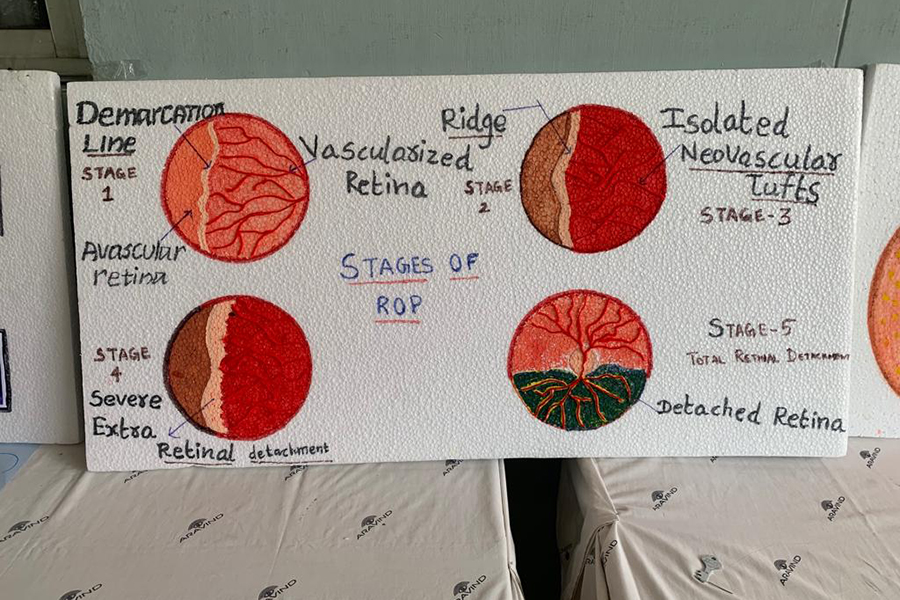 Demarcation
Line
STAGE
1
Vascularized
Retina
Avascular
retina
Ridge
STAGE
2
Isolated
Neovascular
Tufts
STAGE-3
STAGES OF
ROP
STAGE
4
Severe
Extra
Retinal detachment
STAGE-5
TOTAL RETINAL DETACHMENT
Detached Retina
ARAVIND
ARAVIND
ARAVIND
ARAVIND
ARAVIND
ARAVIND
ARAVIND
ARAVIND
ARAVIND
ARAVIND
ARAVIND